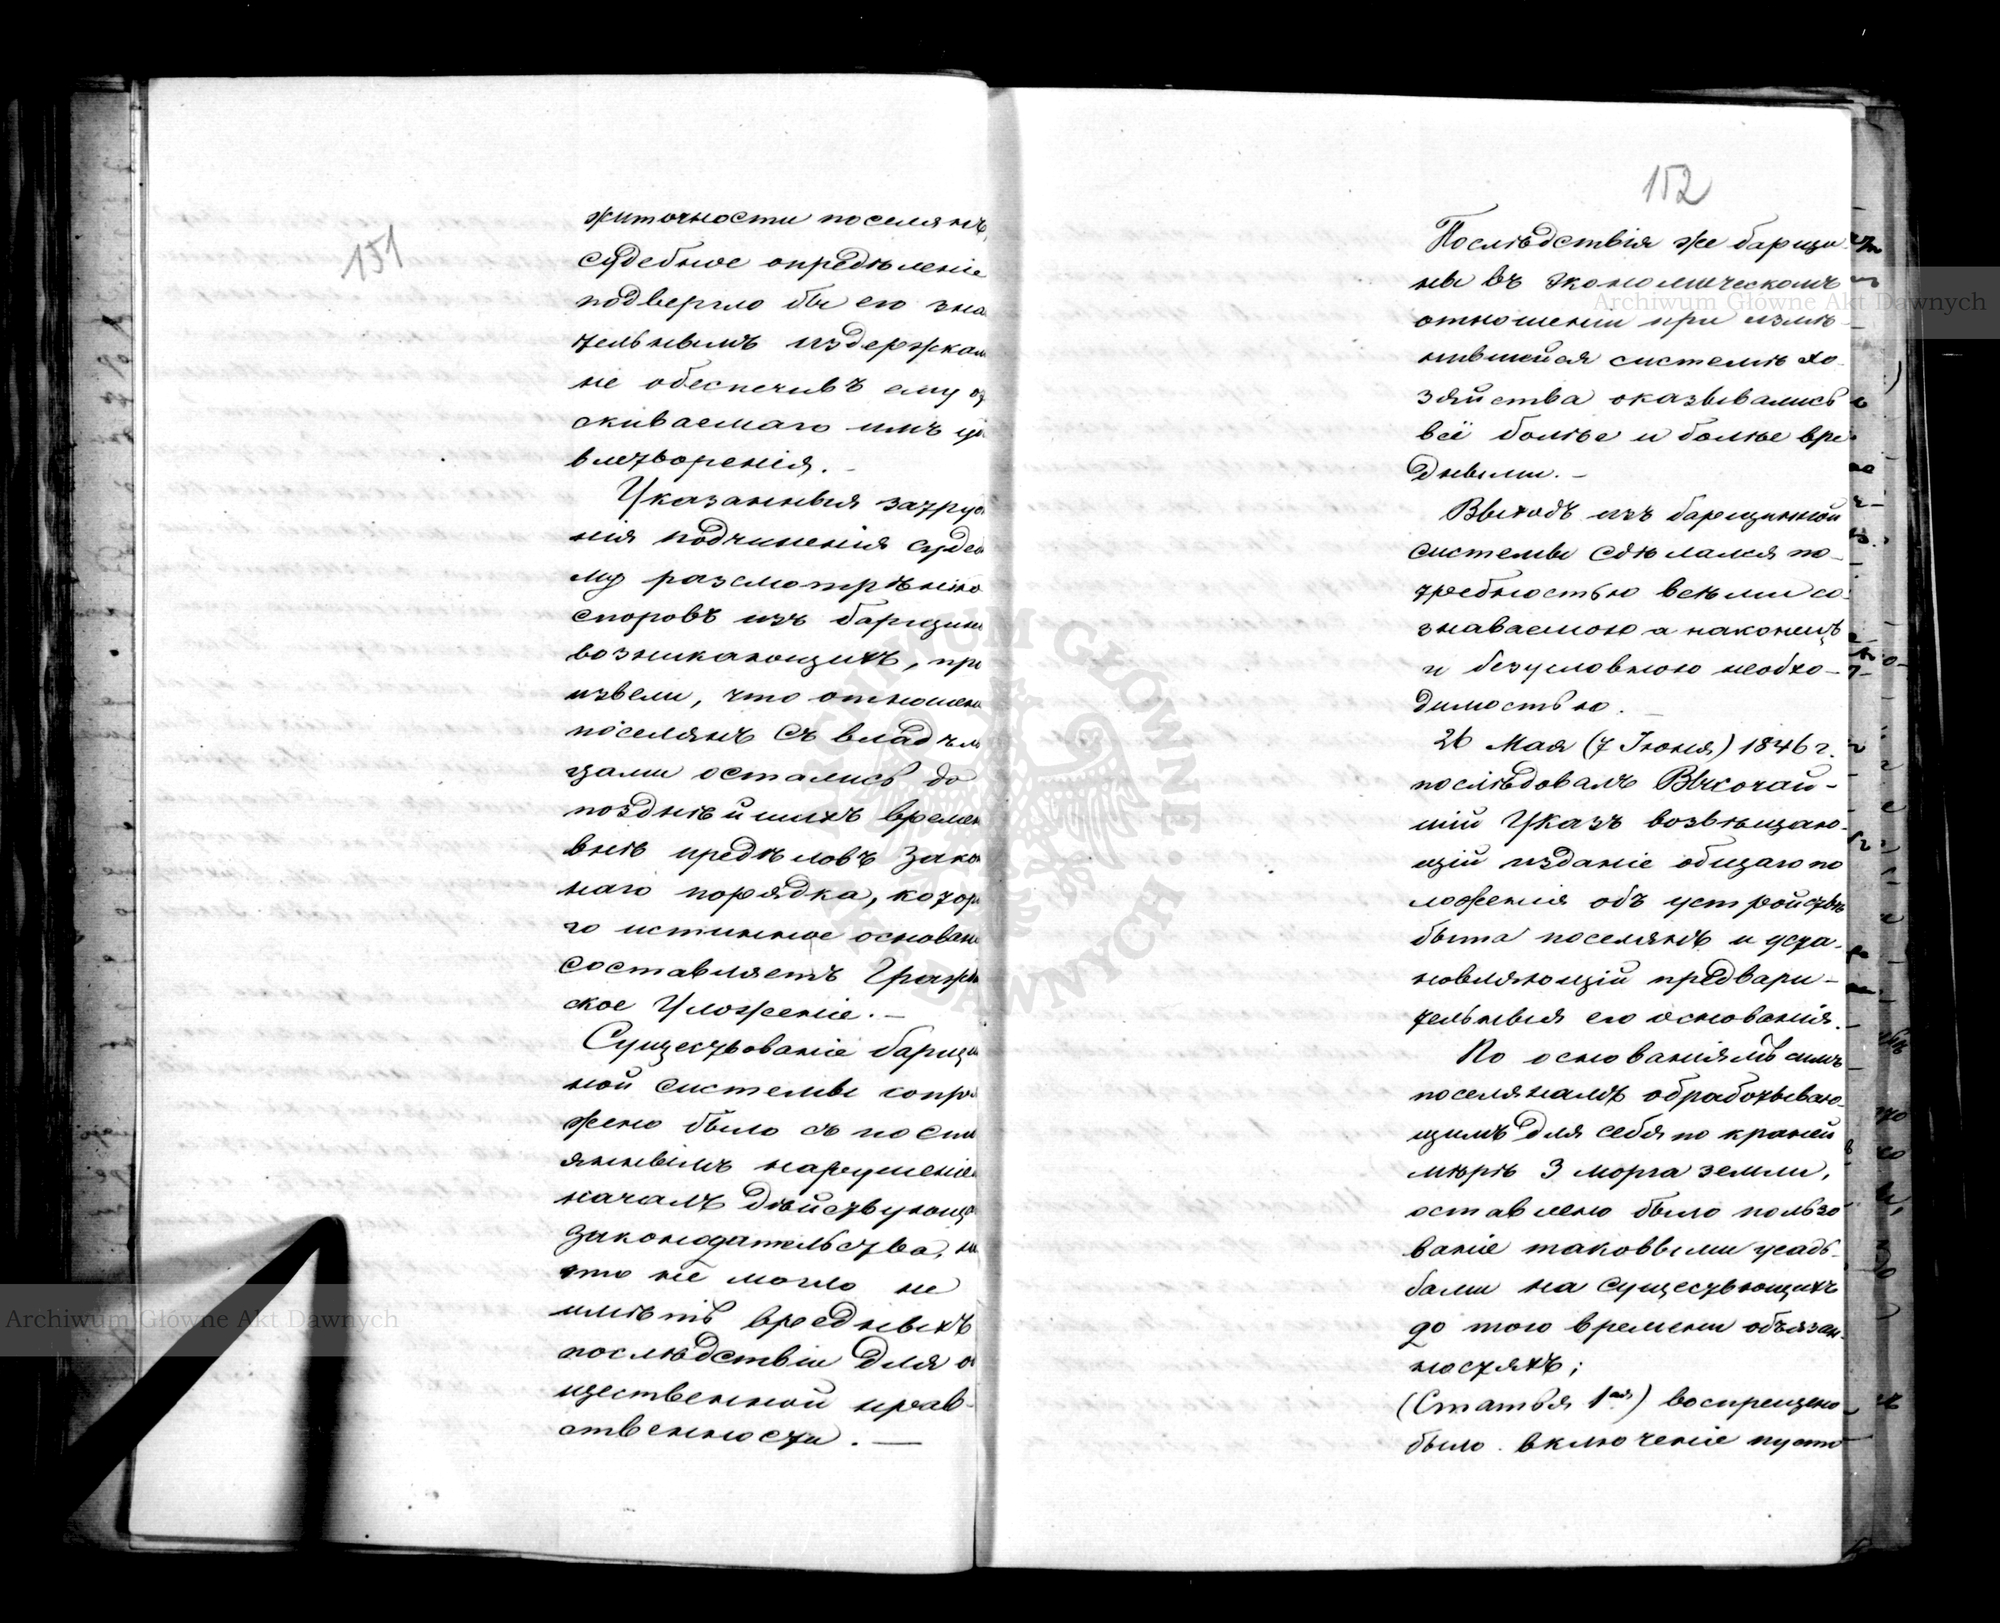 151
житочности поселянъ,
судебное опредѣленіе
подвергло бы его зна
тельнымъ издержкам
не обеспечивъ ему
скиваемаго имъ
влетворенія. -
Указанныя затруд
нія подчиненія судеб
му разсмотрѣнію
споровъ изъ барщин
возникающихъ, про
извели, что отношен
поселянъ съ владѣл
цами остались до
позднѣйшихъ времен
внѣ предѣловъ зако
наго порядка, котор
го истинное основан
составляетъ Гражд
ское Уложеніе. -
Существованіе барщи
ной системы сопря
жено было съ посто
яннымъ нарушеніе
началъ дѣйствующа
законодательства,
это не могло не
имѣть вредныхъ
послѣдствіи для о
щественной нрав-
ственности. —
152
Послѣдствія же барщи
ны въ экономическомъ
отношеніи при измѣ-
нившейся системѣ хо-
зяйства оказывались
всё болѣе и болѣе вре
дными. -
Выходъ изъ барщинной
системы сдѣлался по-
требностью всѣми со-
знаваемою а наконецъ
и безусловною необхо-
димостью. -
26 Мая (7 Іюня) 1846 г.
послѣдовалъ Высочай-
шій Указъ возвѣщаю-
щій изданіе общаго по
ложенія объ устройствѣ
быта поселянъ и уста-
новляющій предвари-
тельныя его основанія.
По основаніямъ симъ
поселянамъ обработываю-
щимъ для себя по краней
мѣрѣ 3 морга земли,
оставлено было пользо
ваніе таковыми усадь-
бами на существующихъ
до того времени обязан-
ностяхъ;
(Статья 1ая) воспрещено
было включеніе пусто
Archiwum Główne Akt Dawnych
Archiwum Główne Akt Dawnych
ARCHIWUM GŁÓWNE AKT DAWNYCH